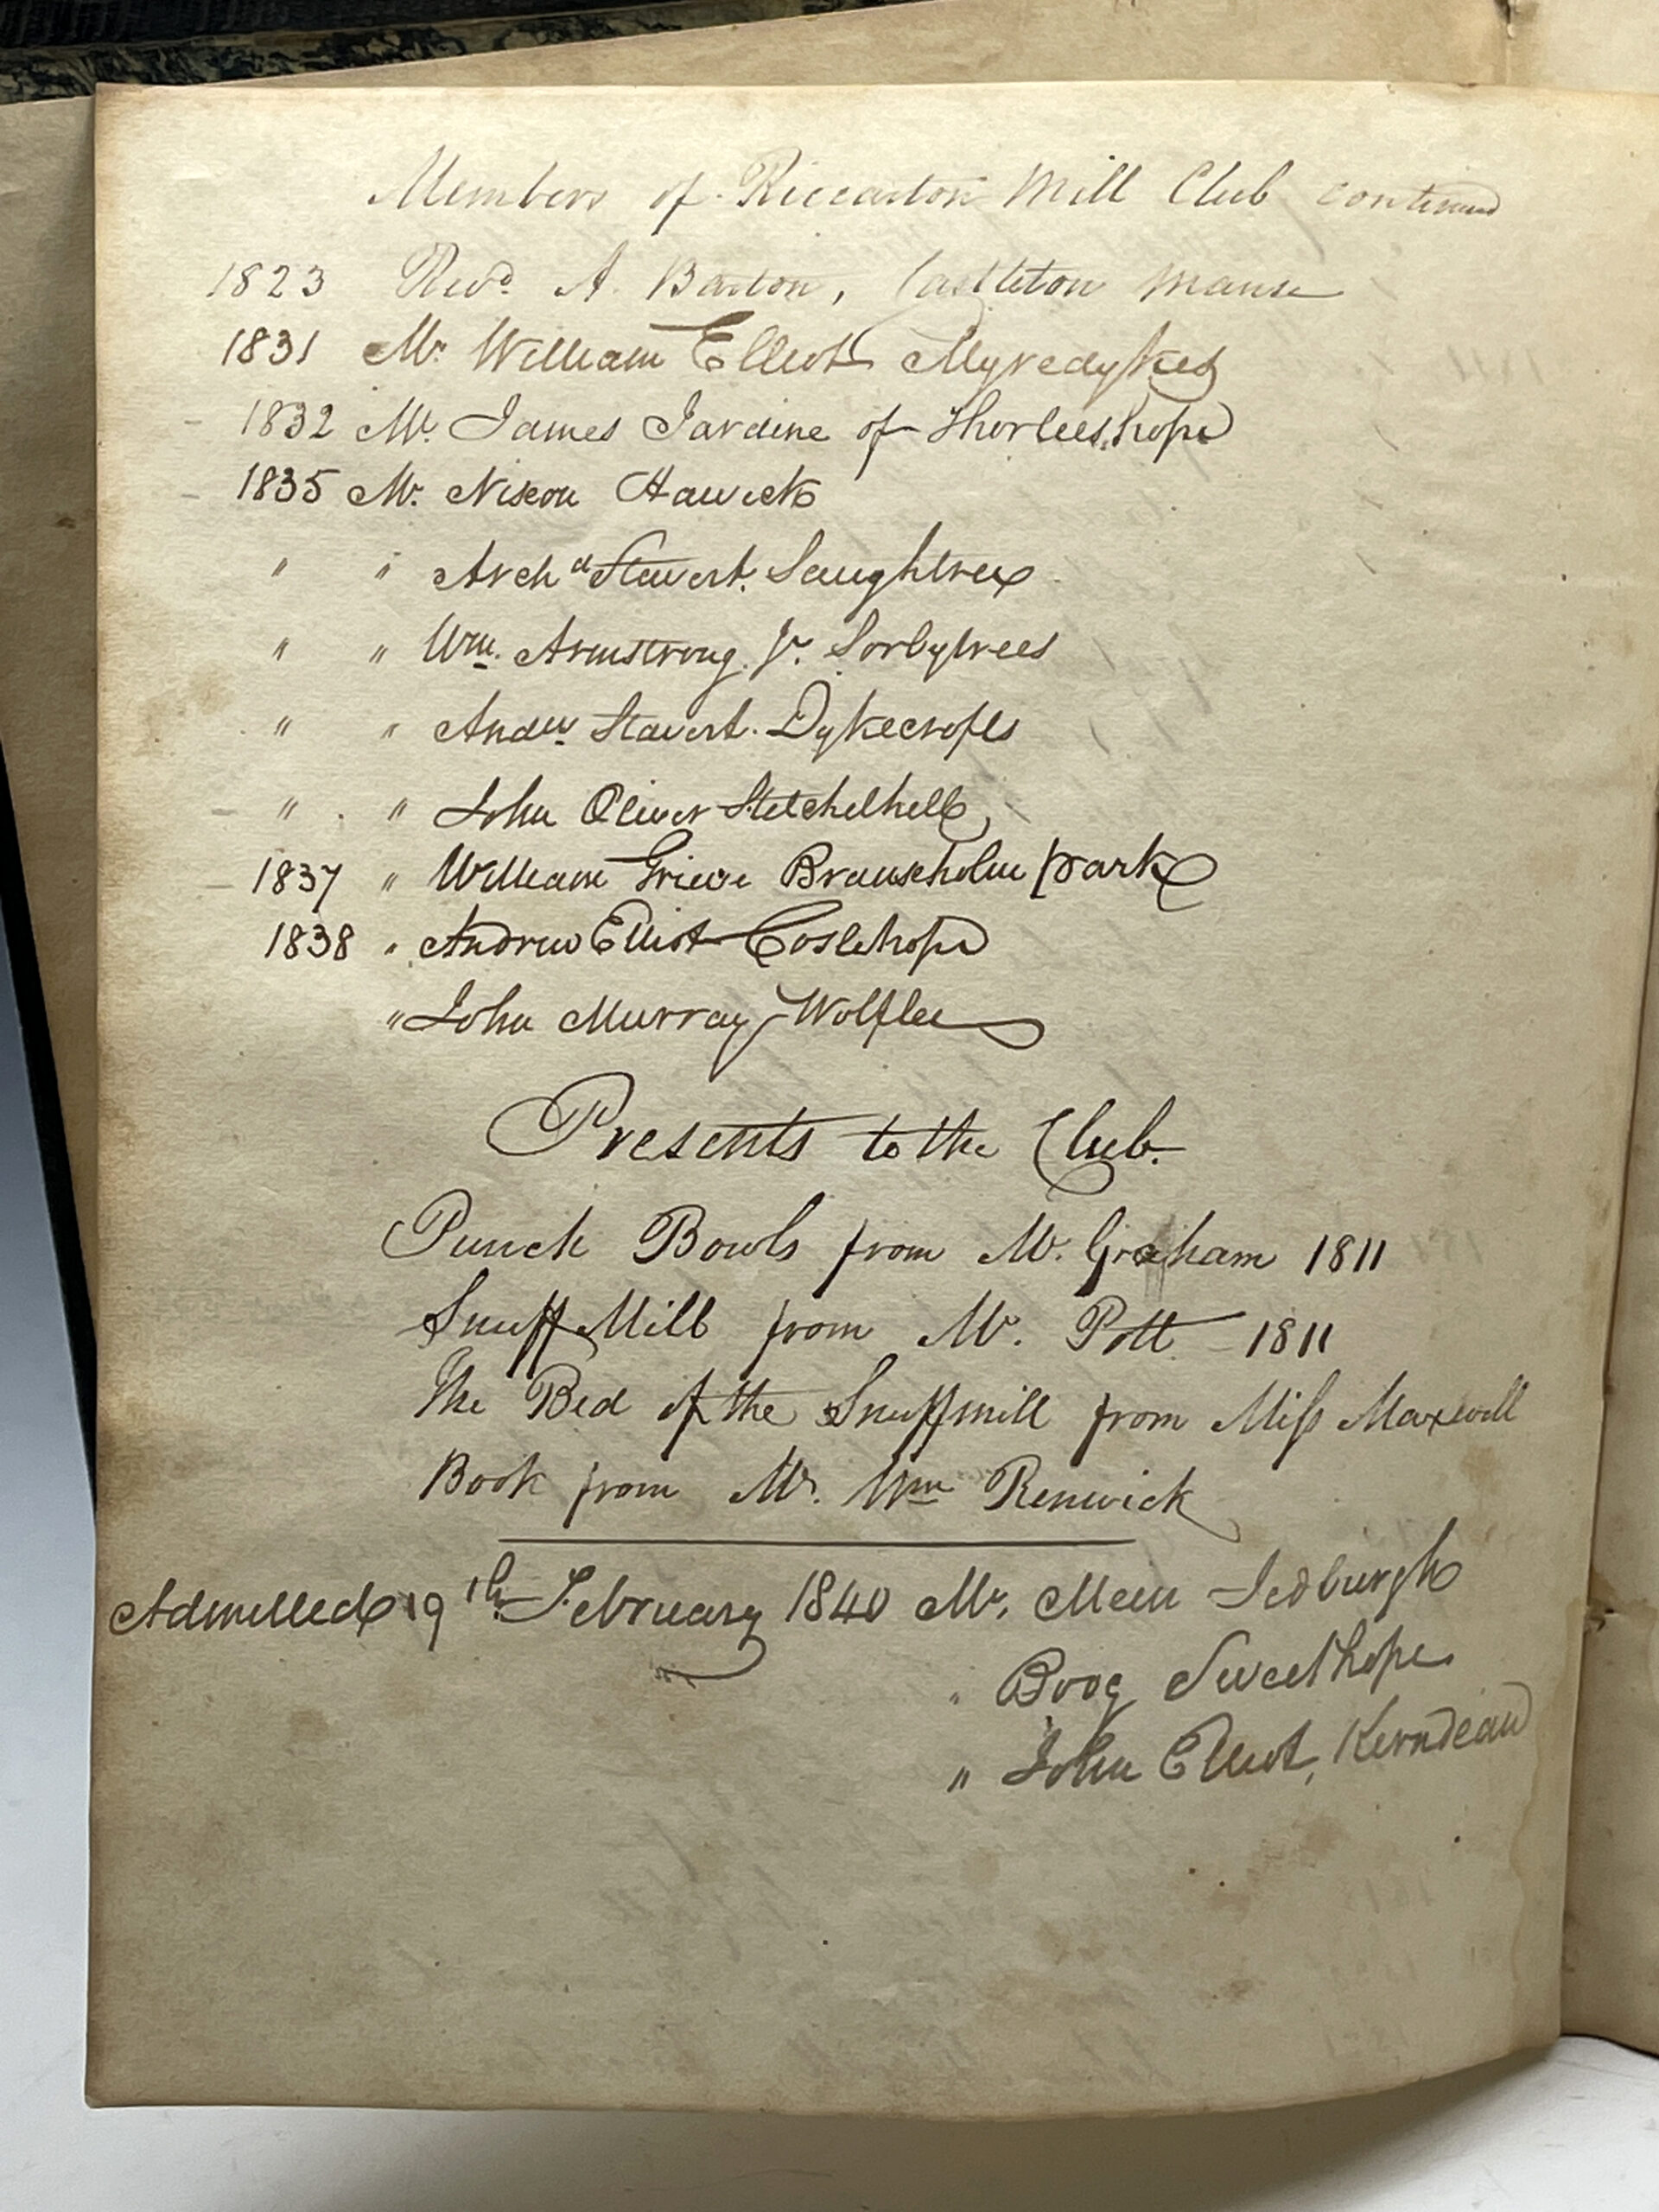 Members of Riccarton Mill Club continued
1823 Revd. A. Barton, Castleton Manse
1831 Mr. William Elliot Myredykes
1832 Mr. James Jardine of Thorlieshope
1835 Mr. Nixon Hawick
" " Archd Stavert. Saughtree
" " Wm. Armstrong. Jr. Sorbytrees
" " Andw. Stavert. Dykecrofts
" " John Oliver Stitchelhill
1837 " William Grieve Branxholm park
1838 " Andrew Elliot
" John Murray Wolflee
Presents to the Club.
Punch Bowls from Mr. Graham 1811
Snuff Mill from Mr. Pott 1811
The Bed of the Snuffmill from Miss Maxwell
Book from Mr. Wm Renwick
Admitted 19th. February 1840 Mr. Mein Jedburgh
" Boog Sweethope
" John Elliot,